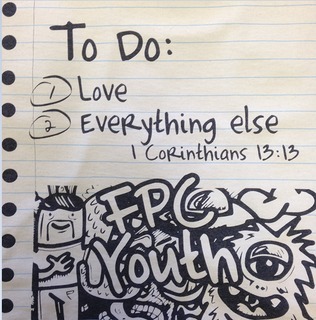 To Do:
1 Love
2 Everything else
1 Corinthians 13:13
F.P.C
Youth